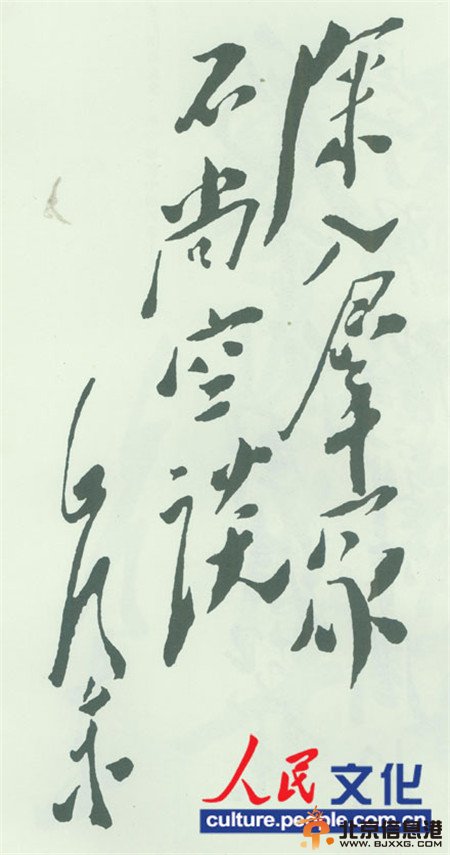 深入群众
不尚空谈
毛泽东
人民 文化
culture.people.com.cn
北京信息港
WWW.BJXXG.COM